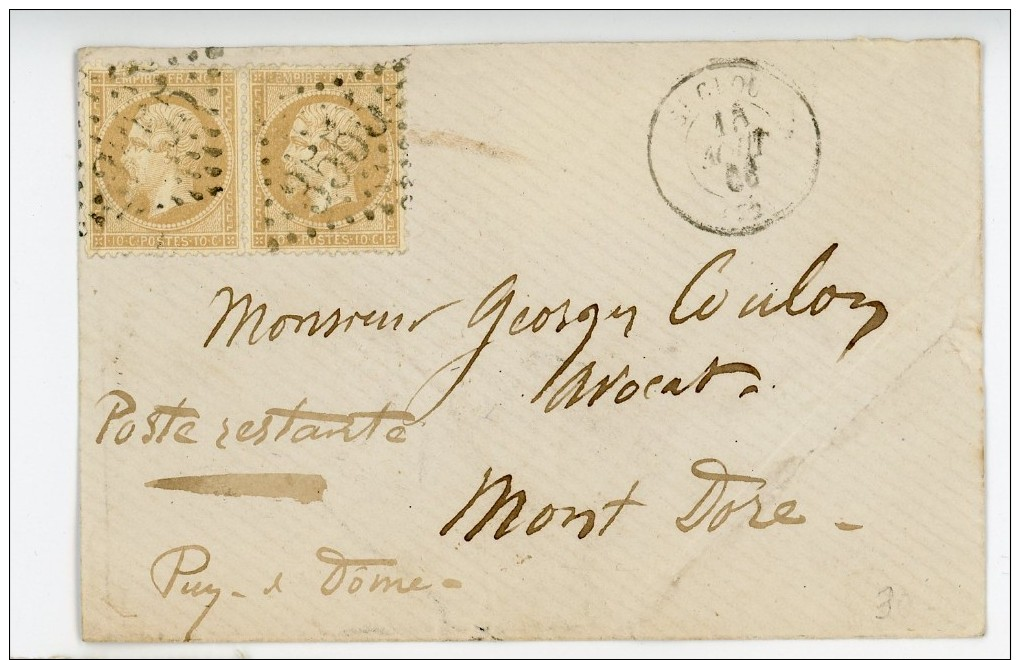 EMPIRE FRANC
EMPIRE FRANC
10·C·POSTES·10·C
POSTES·10·C
3565
ST CLOU
18
AOUT
66
Monsieur Georges Coulon
Avocat.
Poste restante
Mont Dore -
Puy - de Dôme -
3